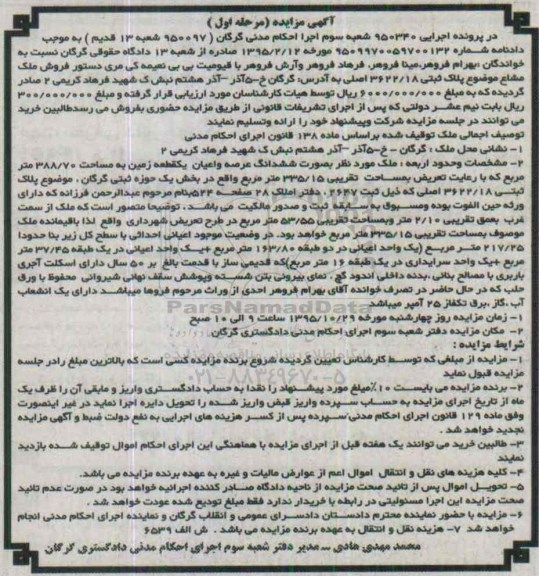 آگهی مزایده (مرحله اول)
در پرونده اجرایی ۹۵۰۳۴۰ شعبه سوم اجرا احکام مدنی گرگان ( ۹۵۰۰۹۷ شعبه ۱۳ قدیم ) به موجب
دادنامه شماره ۹۵۰۹۹۷۰۰۵۹۷۰۰۱۳۲ مورخه ۱۳۹۵/۲/۱۲ صادره از شعبه ۱۳ دادگاه حقوقی گرگان نسبت به
خواندگان :بهرام فروهر،مینا فروهر، فرهاد فروهر وآرش فروهر با قیومیت بی بی نعیمه کی مری دستور فروش ملک
مشاع موضوع پلاک ثبتی ۳۶۲۲/۱۸ اصلی به آدرس: گرگان خ-۵آذر –آذر هشتم نبش ک شهید فرهاد کریمی ۲ صادر
گردیده که به مبلغ ۶/۰۰۰/۰۰۰/۰۰۰ ریال توسط هیات کارشناسان مورد ارزیابی قرار گرفته و مبلغ ۳۰۰/۰۰۰/۰۰۰
ریال بابت نیم عشر دولتی که پس از اجرای تشریفات قانونی از طریق مزایده حضوری بفروش می رسدطالبین خرید
می توانند در جلسه مزایده شرکت وپیشنهاد خود را ارائه وتسلیم نمایند
توصیف اجمالی ملک توقیف شده براساس ماده ۱۳۸ قانون اجرای احکام مدنی
۱- نشانی محل ملک : گرگان – خ-۵آذر –آذر هشتم نبش ک شهید فرهاد کریمی ۲
۲- مشخصات وحدود اربعه : ملک مورد نظر بصورت ششدانگ عرصه واعیان یکقطعه زمین به مساحت ۳۸۸/۷۰ متر
مربع که با رعایت تعریض بمساحت تقریبی ۳۳۵/۱۵ متر مربع واقع در بخش یک حوزه ثبتی گرگان . موضوع پلاک
ثبتی ۳۶۲۲/۱۸ اصلی که ذیل ثبت ۲۶۴۷ ، دفتر املاک ۲۸ صفحه ۵۲۲بنام مرحوم عبدالرحمن فرزانه که دارای
ورثه حین الفوت بوده ومسبوق به سابقه ثبت و صدور مالکیت می باشد . توضیحا متصور است که ملک از سمت
غرب بعمق تقریبی ۲/۱۰ متر وبمساحت تقریبی ۵۳/۵۵ متر مربع در طرح تعریض شهرداری واقع لذا باقیمانده ملک
موصوف بمساحت تقریبی ۳۳۵/۱۵ متر مربع خواهد بود. در وضعیت موجود اعیانی احداثی با سطح کل زیر بنا حدودا
۲۱۷/۲۵ متر مربع (یک واحد اعیانی در دو طبقه ۱۶۳/۸۰ متر مربع +یک واحد اعیانی در یک طبقه ۳۷/۴۵ متر
مربع +یک واحد سرایداری در یک طبقه ۱۶ متر مربع)که قدیمی ساز با قدمت بالغ بر ۵۰ سال دارای اسکلت آجری
باربری با مصالح بنائی ،بدنه داخلی اندود گچ ، نمای بیرونی بتن شسته وپوشش سقف نهائی شیروانی محفوظ با ورق
حلب که در حال حاضر در تصرف خوانده آقای بهرام فروهر احدی از وراث مرحوم فروها میباشد دارای یک انشعاب
آب .گاز .برق تکفاز ۲۵ آمپر میباشد
۱- زمان مزایده روز چهارشنبه مورخه ۱۳۹۵/۱۰/۲۹ ساعت ۹ الی ۱۰ صبح
۲- مکان مزایده دفتر شعبه سوم اجرای احکام مدنی دادگستری گرگان
شرایط مزایده :
۱- مزایده از مبلغی که توسط کارشناس تعیین گردیده شروع برنده مزایده کسی است که بالاترین مبلغ رادر جلسه
مزایده قبول نماید
۲- برنده مزایده می بایست ۱۰٪مبلغ مورد پیشنهاد را نقدا به حساب دادگستری واریز و مابقی آن را ظرف یک
ماه از تاریخ اجرای مزایده به حساب سپرده واریز قبض واریز شده را تحویل دایره اجرا نماید در غیر اینصورت
وفق ماده ۱۲۹ قانون اجرای احکام مدنی:سپرده پس از کسر هزینه های اجرایی به نفع دولت ضبط و آگهی مزایده
تجدید خواهد شد .
۳- طالبین خرید می توانند یک هفته قبل از اجرای مزایده با هماهنگی این اجرای احکام اموال توقیف شده بازدید
نمایند
۴- کلیه هزینه های نقل و انتقال اموال اعم از عوارض مالیات و غیره به عهده برنده مزایده می باشد.
۵- تحویل اموال پس از تائید صحت مزایده از ناحیه دادگاه صادر کننده اجرائیه خواهد بود در صورت عدم تائید
صحت مزایده این اجرا مسئولیتی در رابطه با خریدار ندارد فقط مبلغ تودیع شده عودت خواهد شد .
۶- مزایده با حضور نماینده محترم دادستان دادسرای عمومی و انقلاب گرگان و نماینده اجرای احکام مدنی انجام
خواهد شد ۷- هزینه نقل و انتقال به عهده برنده مزایده می باشد . ش الف ۶۵۳۹
محمد مهدی هادی – مدیر دفتر شعبه سوم اجرای احکام مدنی دادگستری گرگان
ParsNamadData
۰۲۱-۸۸۳۴۹۶۷۰-۵